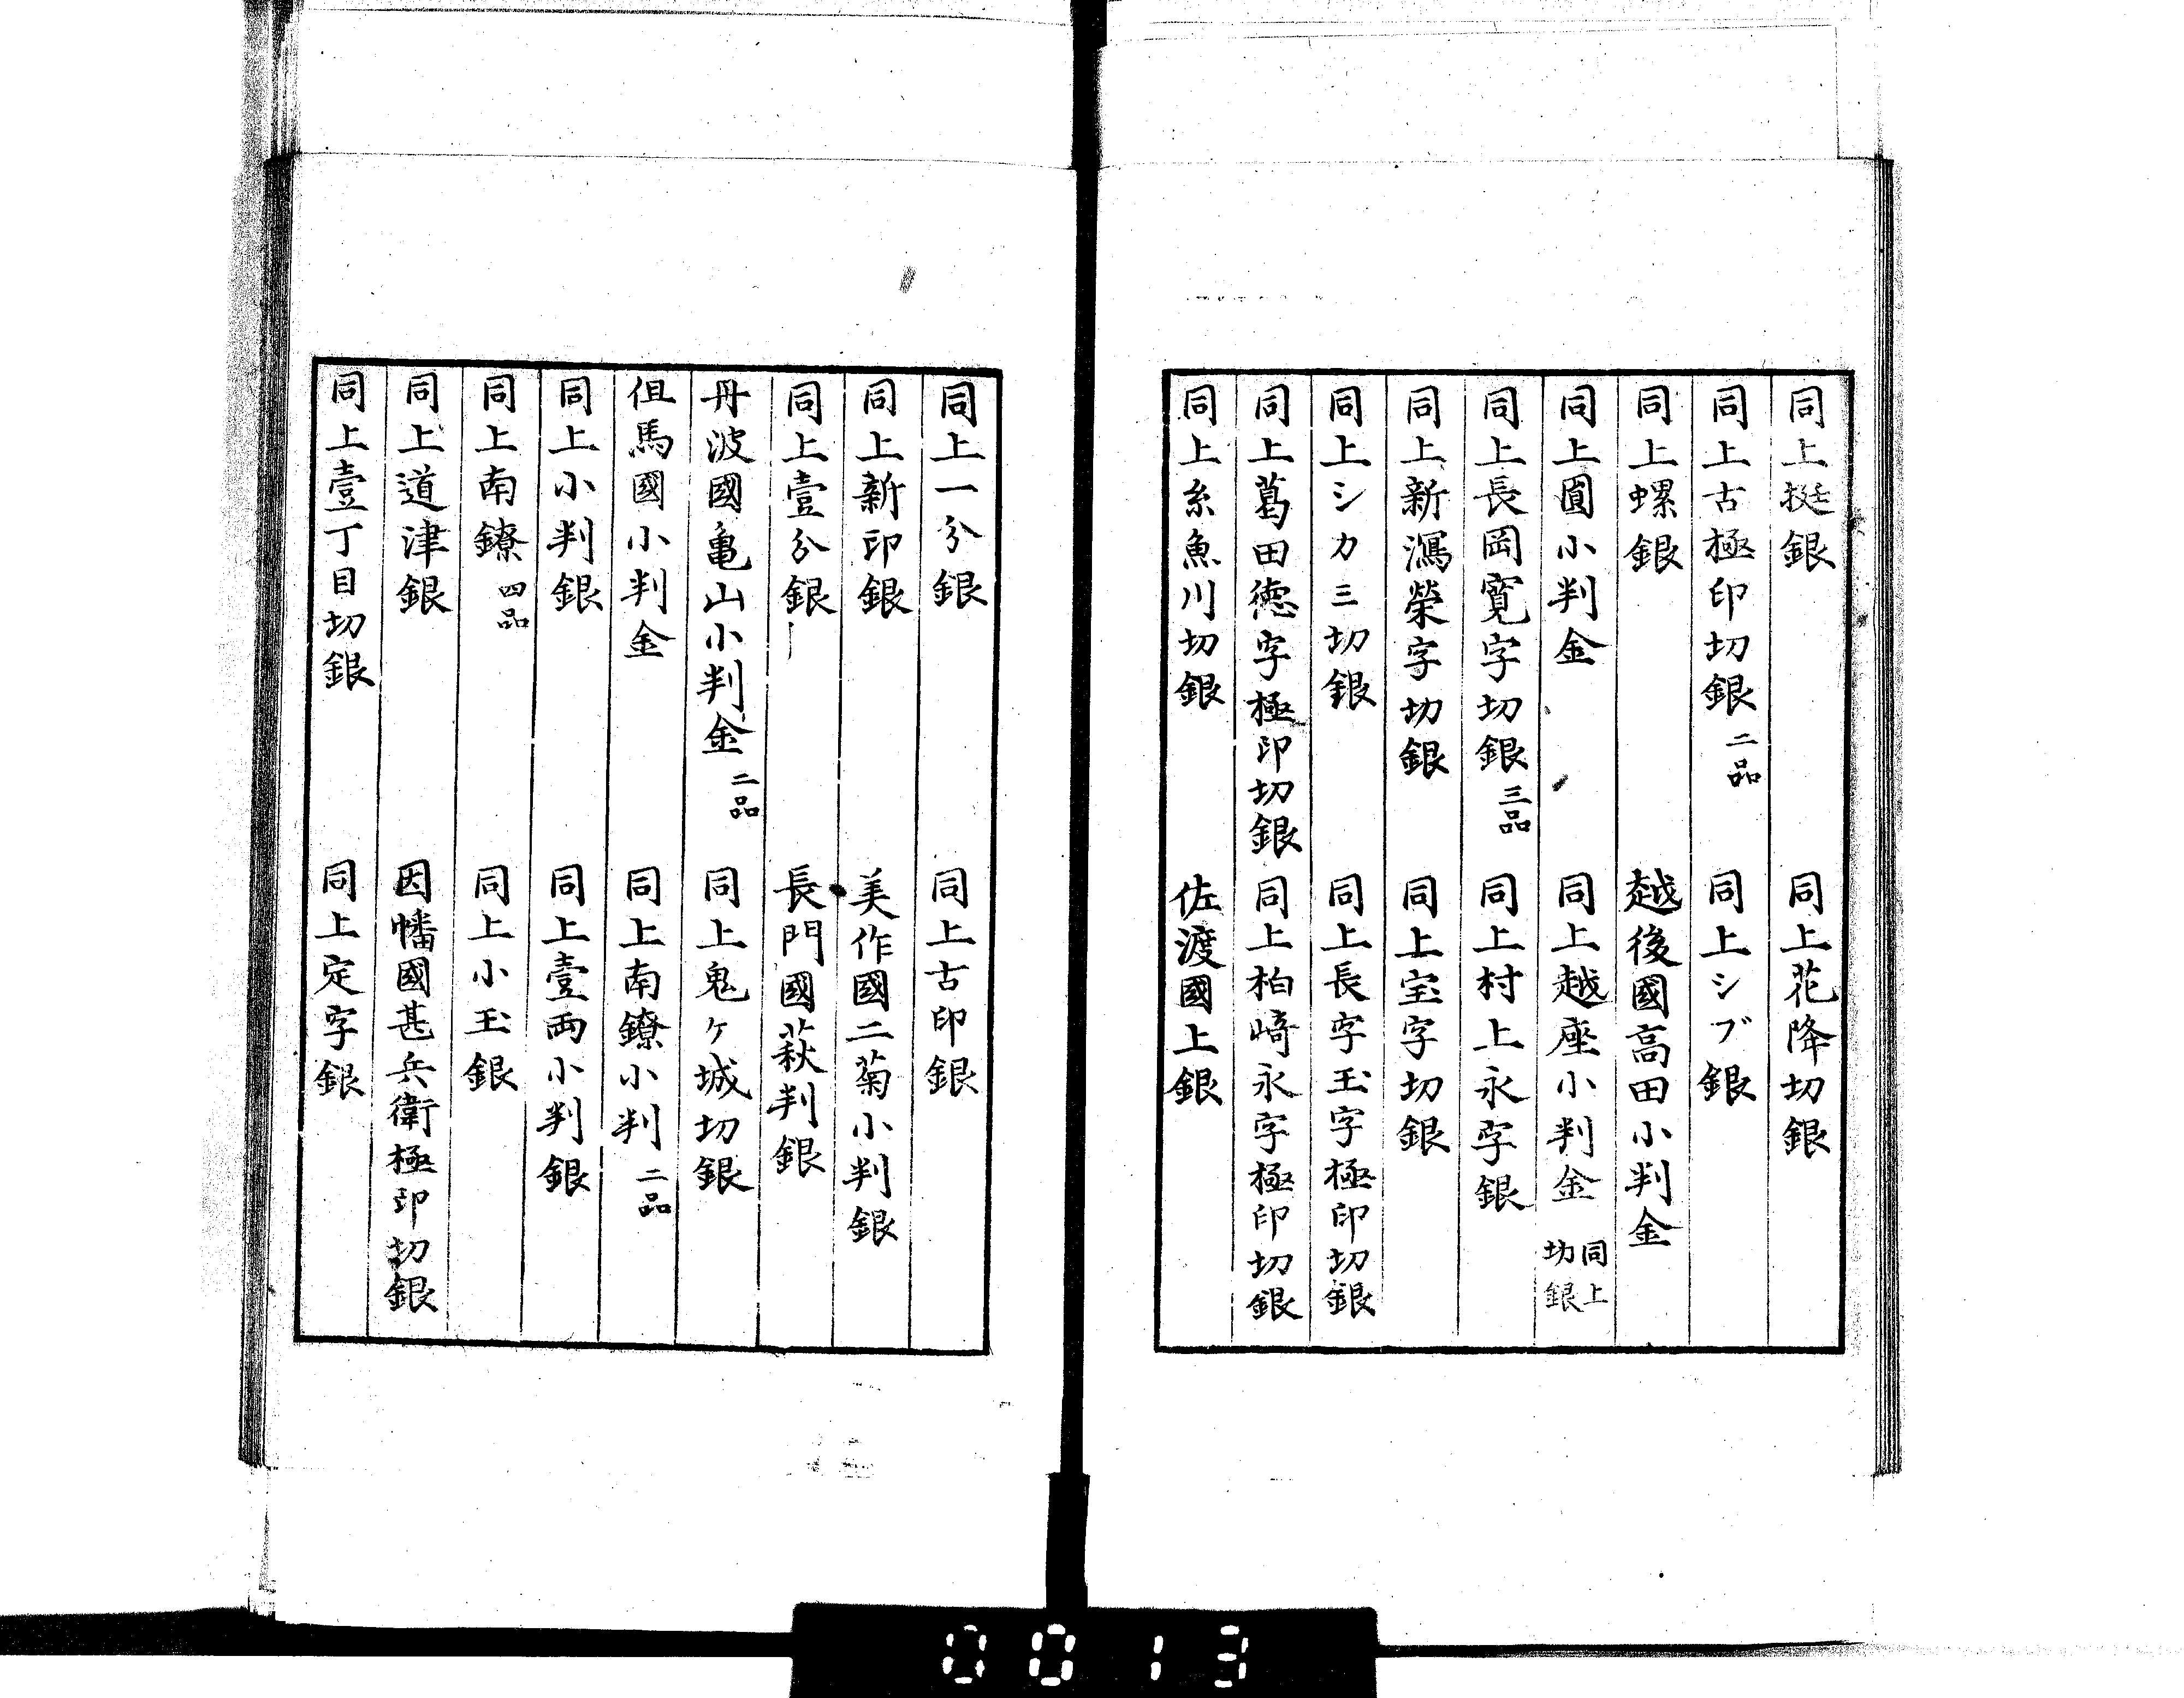 同上挺銀　同上花降切銀
同上古極印切銀二品　同上シブ銀
同上螺銀　越後國高田小判金
同上圓小判金　同上越座小判金 同上切銀
同上長岡寛字切銀三品　同上村上永字銀
同上新潟榮字切銀　同上宝字切銀
同上シカ三切銀　同上長字玉字極印切銀
同上葛田徳字極印切銀　同上柏崎永字極印切銀
同上糸魚川切銀　佐渡國上銀
同上一分銀　同上古印銀
同上新印銀　美作國二菊小判銀
同上壹分銀　長門國萩判銀
丹波國亀山小判金二品　同上鬼ヶ城切銀
但馬國小判金　同上南鐐小判二品
同上小判銀　同上壹両小判銀
同上南鐐四品　同上小玉銀
同上道津銀　因幡國甚兵衛極印切銀
同上壹丁目切銀　同上定字銀
0013